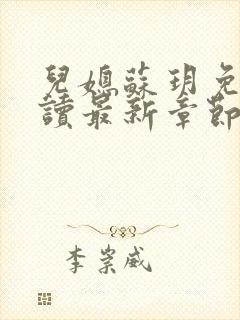 兒媳蘇玥免
讀最新章節
李崇威